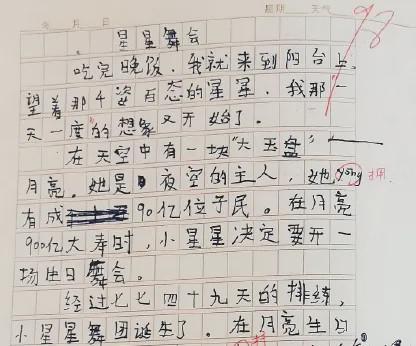 年 月 日 星期 天气
98
星星舞会
吃完晚饭,我就来到阳台上,
望着那千姿百态的星星,我那“一
天一度”的想象又开始了。
在天空中有一块“大玉盘”——
月亮。她是夜空的主人,她yong 拥
有成90亿位子民。在月亮
900亿大寿时,小星星决定要开一
场生日舞会。
经过七七四十九天的排练,
小星星舞团诞生了。在月亮生日